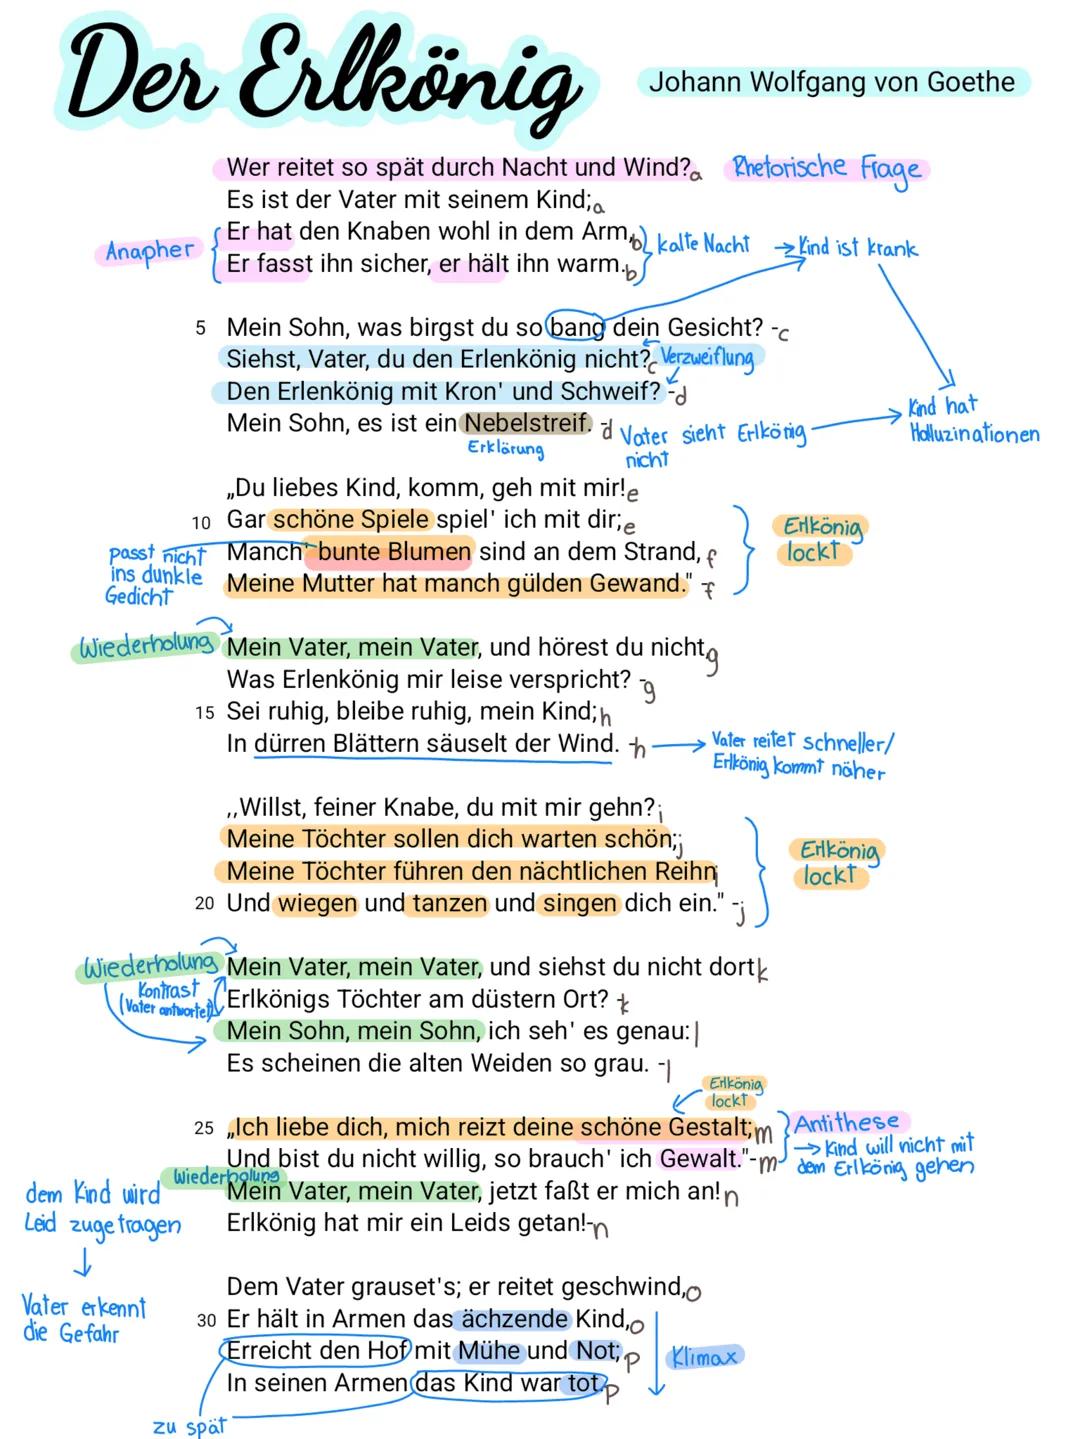 Der Erlkönig
Johann Wolfgang von Goethe
Wer reitet so spät durch Nacht und Wind? a Rhetorische Frage
Es ist der Vater mit seinem Kind; a
Anapher
Er hat den Knaben wohl in dem Arm, b
kalte Nacht → Kind ist krank
Er fasst ihn sicher, er hält ihn warm. b
5 Mein Sohn, was birgst du so bang dein Gesicht? -c
Siehst, Vater, du den Erlenkönig nicht? c Verzweiflung
Den Erlenkönig mit Kron' und Schweif? -d
Mein Sohn, es ist ein Nebelstreif. -d
Erklärung
Vater sieht Erlkönig
nicht
Kind hat
Halluzinationen
„Du liebes Kind, komm, geh mit mir! e
10 Gar schöne Spiele spiel' ich mit dir; e
Manch' bunte Blumen sind an dem Strand, f
Meine Mutter hat manch gülden Gewand." -f
Erlkönig
lockt
passt nicht
ins dunkle
Gedicht
Wiederholung
Mein Vater, mein Vater, und hörest du nicht, g
Was Erlenkönig mir leise verspricht? -g
15 Sei ruhig, bleibe ruhig, mein Kind; h
In dürren Blättern säuselt der Wind. -h
→ Vater reitet schneller/
Erlkönig kommt näher
,,Willst, feiner Knabe, du mit mir gehn? i
Meine Töchter sollen dich warten schön; j
Meine Töchter führen den nächtlichen Reihn j
20 Und wiegen und tanzen und singen dich ein." -j
Erlkönig
lockt
Wiederholung
Mein Vater, mein Vater, und siehst du nicht dort k
Kontrast
(Vater antwortet)
Erlkönigs Töchter am düstern Ort? -k
Mein Sohn, mein Sohn, ich seh' es genau: l
Es scheinen die alten Weiden so grau. -l
Erlkönig
lockt
25 „Ich liebe dich, mich reizt deine schöne Gestalt; m
Und bist du nicht willig, so brauch' ich Gewalt."-m
Antithese
→ Kind will nicht mit
dem Erlkönig gehen
Wiederholung
Mein Vater, mein Vater, jetzt faßt er mich an! n
Erlkönig hat mir ein Leids getan!-n
dem Kind wird
Leid zugetragen
↓
Vater erkennt
die Gefahr
Dem Vater grauset's; er reitet geschwind, o
30 Er hält in Armen das ächzende Kind, o
Erreicht den Hof mit Mühe und Not; p
In seinen Armen das Kind war tot. p
Klimax
zu spät